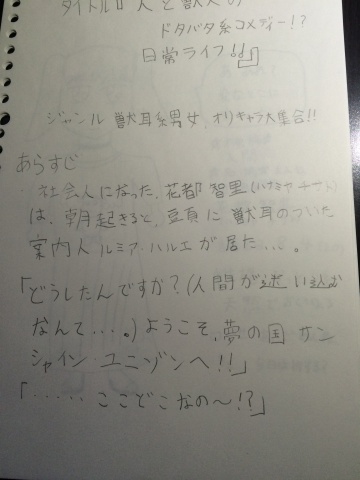 タイトル『人と獣人の
ドタバタ系コメディー!?
日常ライフ!!』
ジャンル 獣耳系男女、オリキャラ大集合!!
あらすじ
社会人になった、花都 智里(ハナミヤ チサト)
は、朝起きると、豆頁に獣耳のついた
案内人 ルミア・ハルエが居た…。
「どうしたんですか?(人間が迷い込む
なんて…。)ようこそ、夢の国 サン
シャイン・ユニゾンへ!!」
「……ここどこなの〜!?」